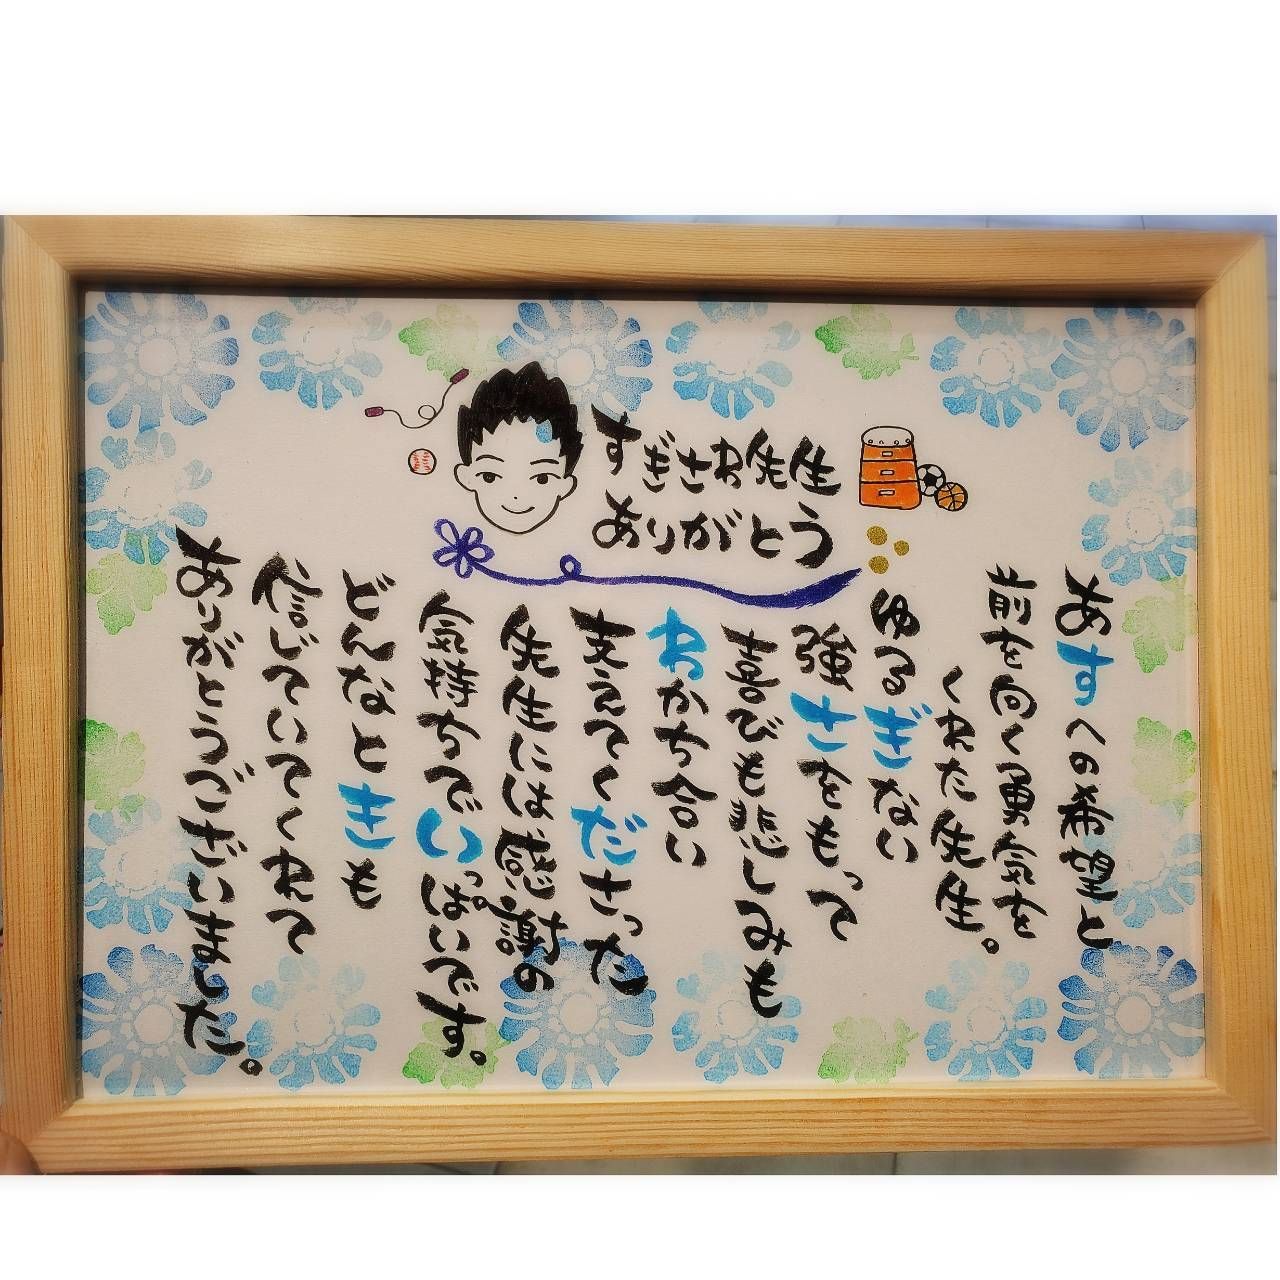 すぎさわ先生
ありがとう
あすへの希望と
前を向く勇気を
くれた先生。
ゆるぎない
強さをもって
喜びも悲しみも
わかち合い
支えてくださった
先生には感謝の
気持ちでいっぱいです。
どんなときも
信じていてくれて
ありがとうございました。